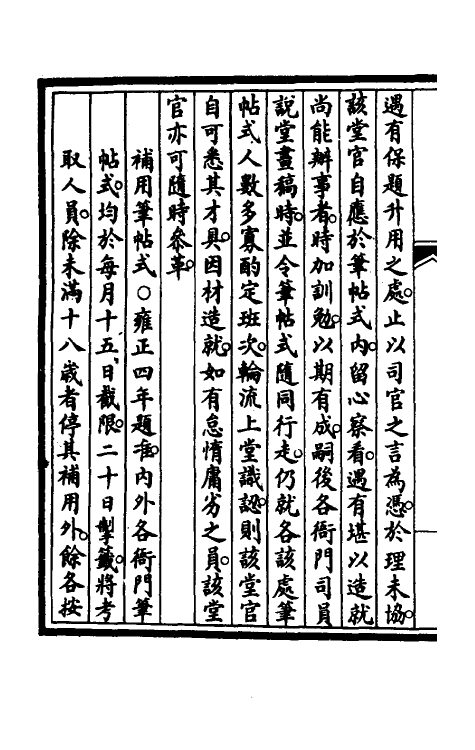 遇有保題升用之處。止以司官之言為憑。於理未協。
該堂官自應於筆帖式內。留心察看。遇有堪以造就
尚能辦事者。時加訓勉。以期有成。嗣後各衙門司員
說堂畫稿時。並令筆帖式隨同行走。仍就各該處筆
帖式人數多寡。酌定班次。輪流上堂識認。則該堂官
自可悉其才具。因材造就。如有怠惰庸劣之員。該堂
官亦可隨時參革。
補用筆帖式○雍正四年題准。內外各衙門筆
帖式。均於每月十五、日截限。二十日掣籤。將考
取人員。除未滿十八歲者停其補用外。餘各按